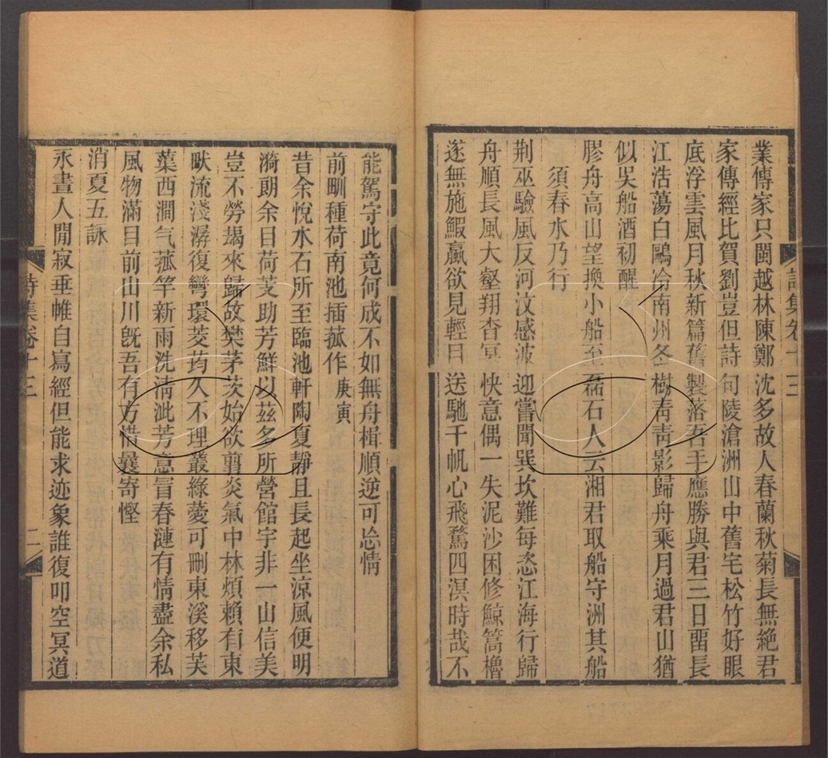 業傳家只閩越林陳鄭沈多故人春蘭秋菊長無絶君
家傳經比賀劉豈但詩句陵滄洲山中舊宅松竹好眼
底浮雲風月秋新篇舊製落吾手應勝與君三日畱長
江浩蕩白鷗冷南州冬樹靑靑影歸舟乘月過君山猶
似吳船酒初醒
膠舟高山望換小船至磊石人云湘君取船守洲其船
須春水乃行
荆巫驗風反河汶感波迎嘗聞巽坎難每恣江海行歸
舟順長風大壑翔杳冥快意偶一失泥沙困修鯨篙櫓
遂無施鰕蠃欲見輕日送馳千帆心飛騖四溟時哉不
詩集卷十三
能駕守此竟何成不如無舟楫順逆可忘情
前甽種荷南池插菰作庚寅
昔余悅水石所至臨池軒陶夏靜且長起坐涼風便明
漪朗余目荷芰助芳鮮以茲多所營館宇非一山信美
豈不勞朅來歸故樊茅茨始欲翦炎氣中林煩賴有東
畎流淺潺復彎環菱荺久不理叢綠薆可刪東溪移芙
蕖西澗气菰竿新雨洗淸泚芳意冒春漣有情盡余私
風物滿目前山川旣吾有方惜曩寄慳
消夏五詠
永晝人閒寂垂帷自寫經但能求迹象誰復叩空冥道
詩集卷十三
二